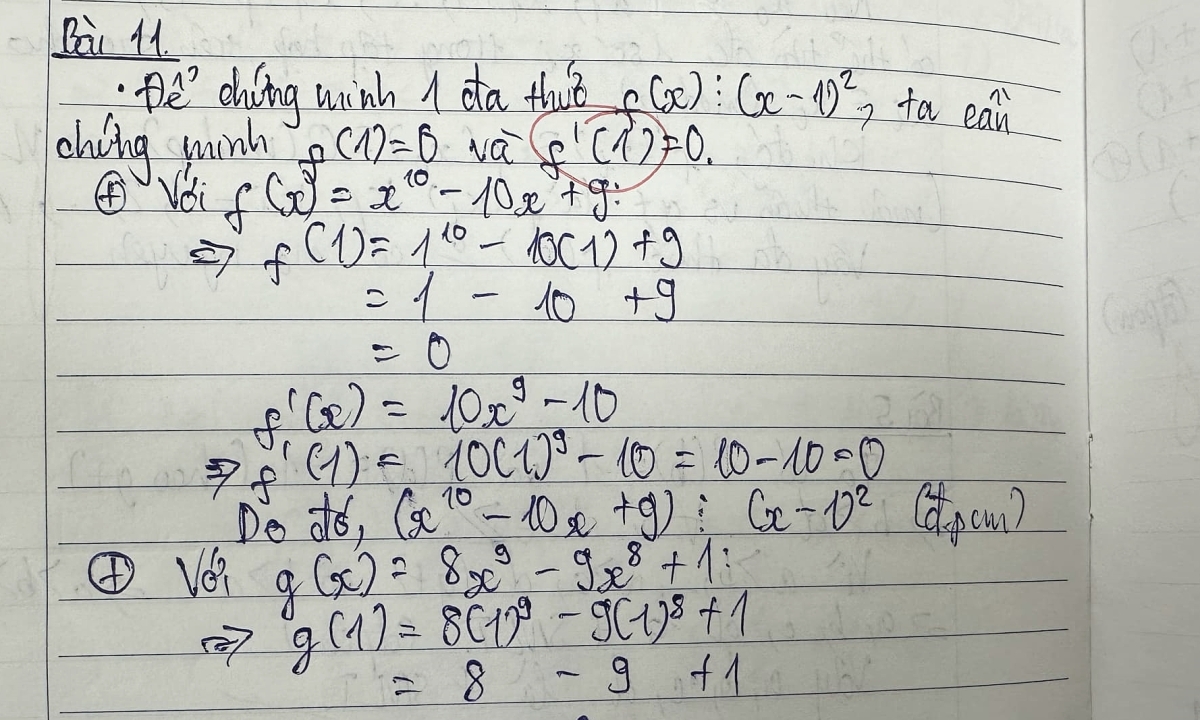 Bài 11.
• Để chứng minh 1 đa thức f(x) ⋮ (x – 1)², ta cần
chứng minh f(1) = 0 và f'(1) = 0.
⊕ Với f(x) = x¹⁰ – 10x + 9:
⇒ f(1) = 1¹⁰ – 10(1) + 9
= 1 – 10 + 9
= 0
f'(x) = 10x⁹ – 10
⇒ f'(1) = 10(1)⁹ – 10 = 10 – 10 = 0
Do đó, (x¹⁰ – 10x + 9) ⋮ (x – 1)² (đpcm)
⊕ Với g(x) = 8x⁹ – 9x⁸ + 1:
⇒ g(1) = 8(1)⁹ – 9(1)⁸ + 1
= 8 – 9 + 1